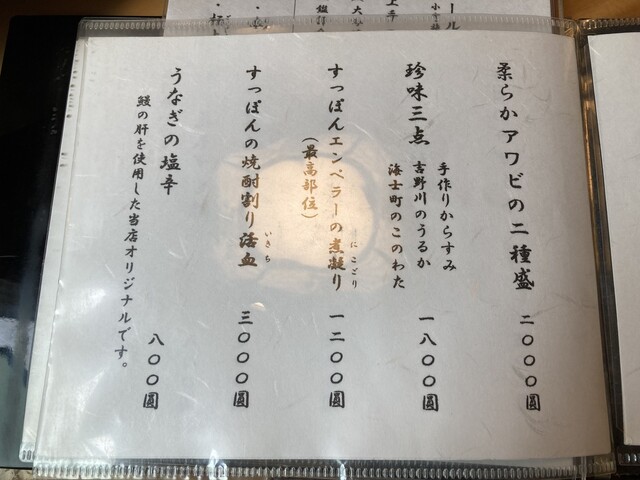 柔らかアワビの二種盛 二〇〇〇圓
珍味三点 一八〇〇圓
手作りからすみ
吉野川のうるか
海士町のこのわた
すっぽんエンペラーの煮凝り 一二〇〇圓
にこごり
(最高部位)
すっぽんの焼酎割り活血 三〇〇〇圓
いきち
うなぎの塩辛 八〇〇圓
鰻の肝を使用した当店オリジナルです。